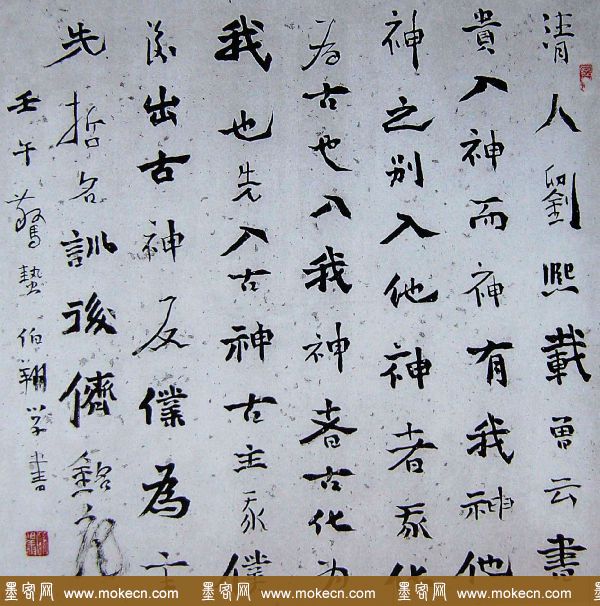 清人劉熙載曾云書
貴入神而神有我神他
神之别入他神者我化
為古也入我神者古化为
我也先入古神古主我僕
後出古神反僕為主
先哲名訓後儕銘
壬午驚蟄伯翔学書
墨客网 www.mokecn.com 墨客网 www.mokecn.com 墨客网 www.mokecn.com